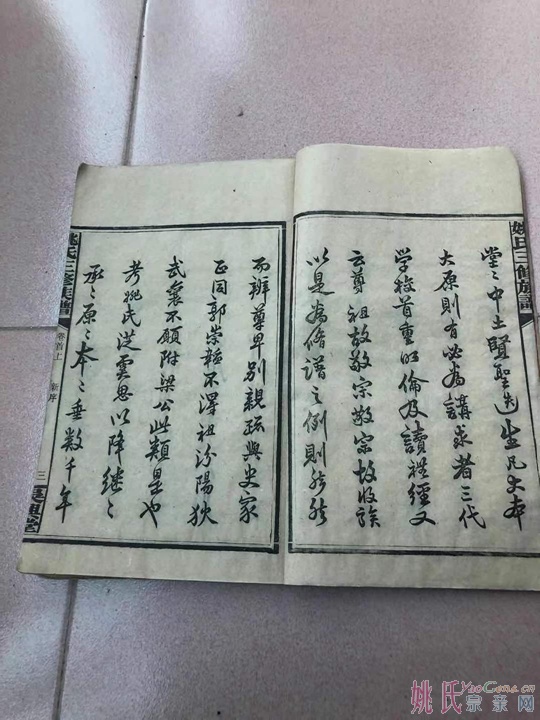 姚氏三修族譜
堂々中土賢聖迭生凡大本
大原則有必為講求者三代
学校首重明倫及讀禮經又
云尊祖故敬宗敬宗故收族
以是為脩譜之例則
而辨尊卑別親疏與史家
正同郭崇韜不
祖汾陽狄
武襄不願附梁公此類是也
考姚氏從虞思以降繼々
承々原々本々垂數千年
姚氏三修族譜
卷首上
新序
三
堂
姚氏宗亲网